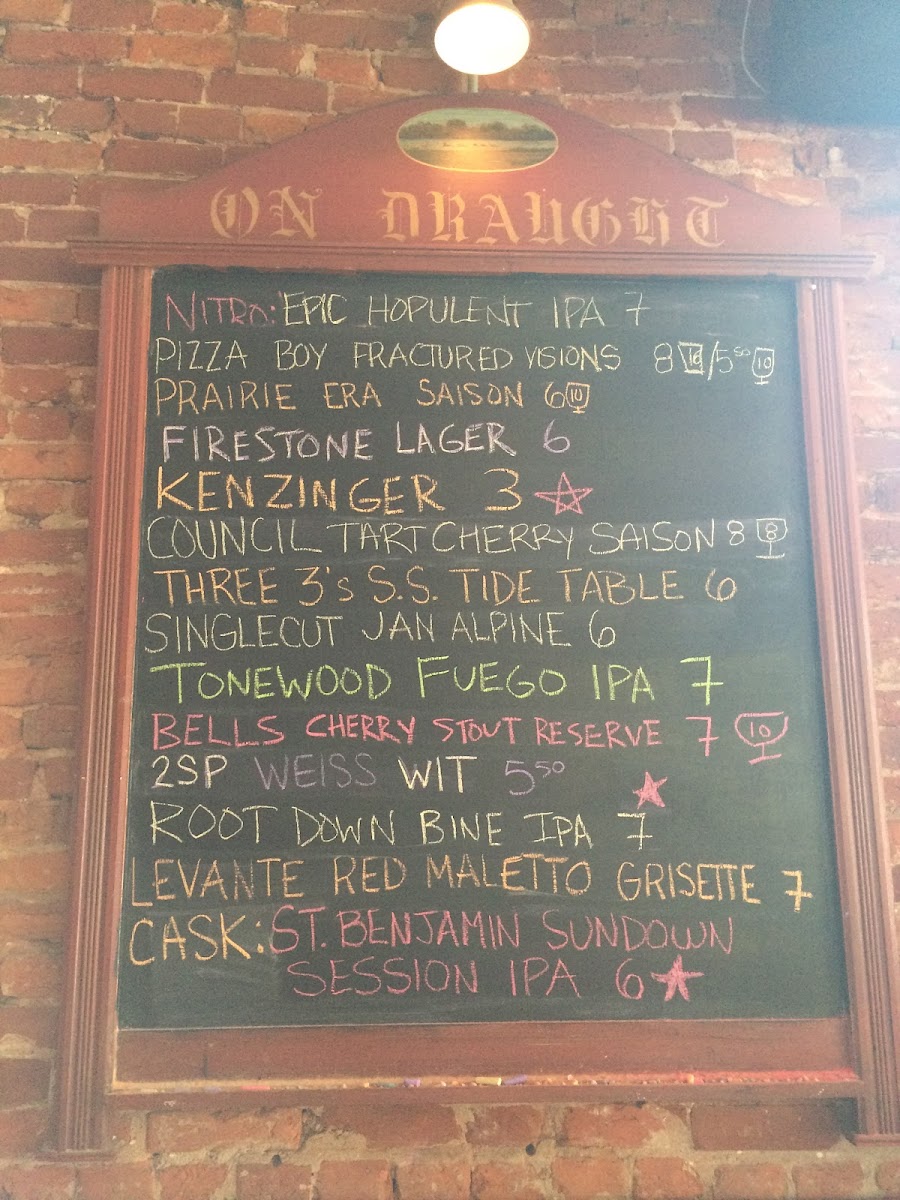 ON DRAUGHT
NITRO: EPIC HOPULENT IPA 7
PIZZA BOY FRACTURED VISIONS 8 16/5 50 10
PRAIRIE ERA SAISON 6 10
FIRESTONE LAGER 6
KENZINGER 3
COUNCIL TART CHERRY SAISON 8 8
THREE 3's S.S. TIDE TABLE 6
SINGLECUT JAN ALPINE 6
TONEWOOD FUEGO IPA 7
BELLS CHERRY STOUT RESERVE 7 10
2SP WEISS WIT 5 50
ROOT DOWN BINE IPA 7
LEVANTE RED MALETTO GRISETTE 7
CASK: ST. BENJAMIN SUNDOWN
SESSION IPA 6